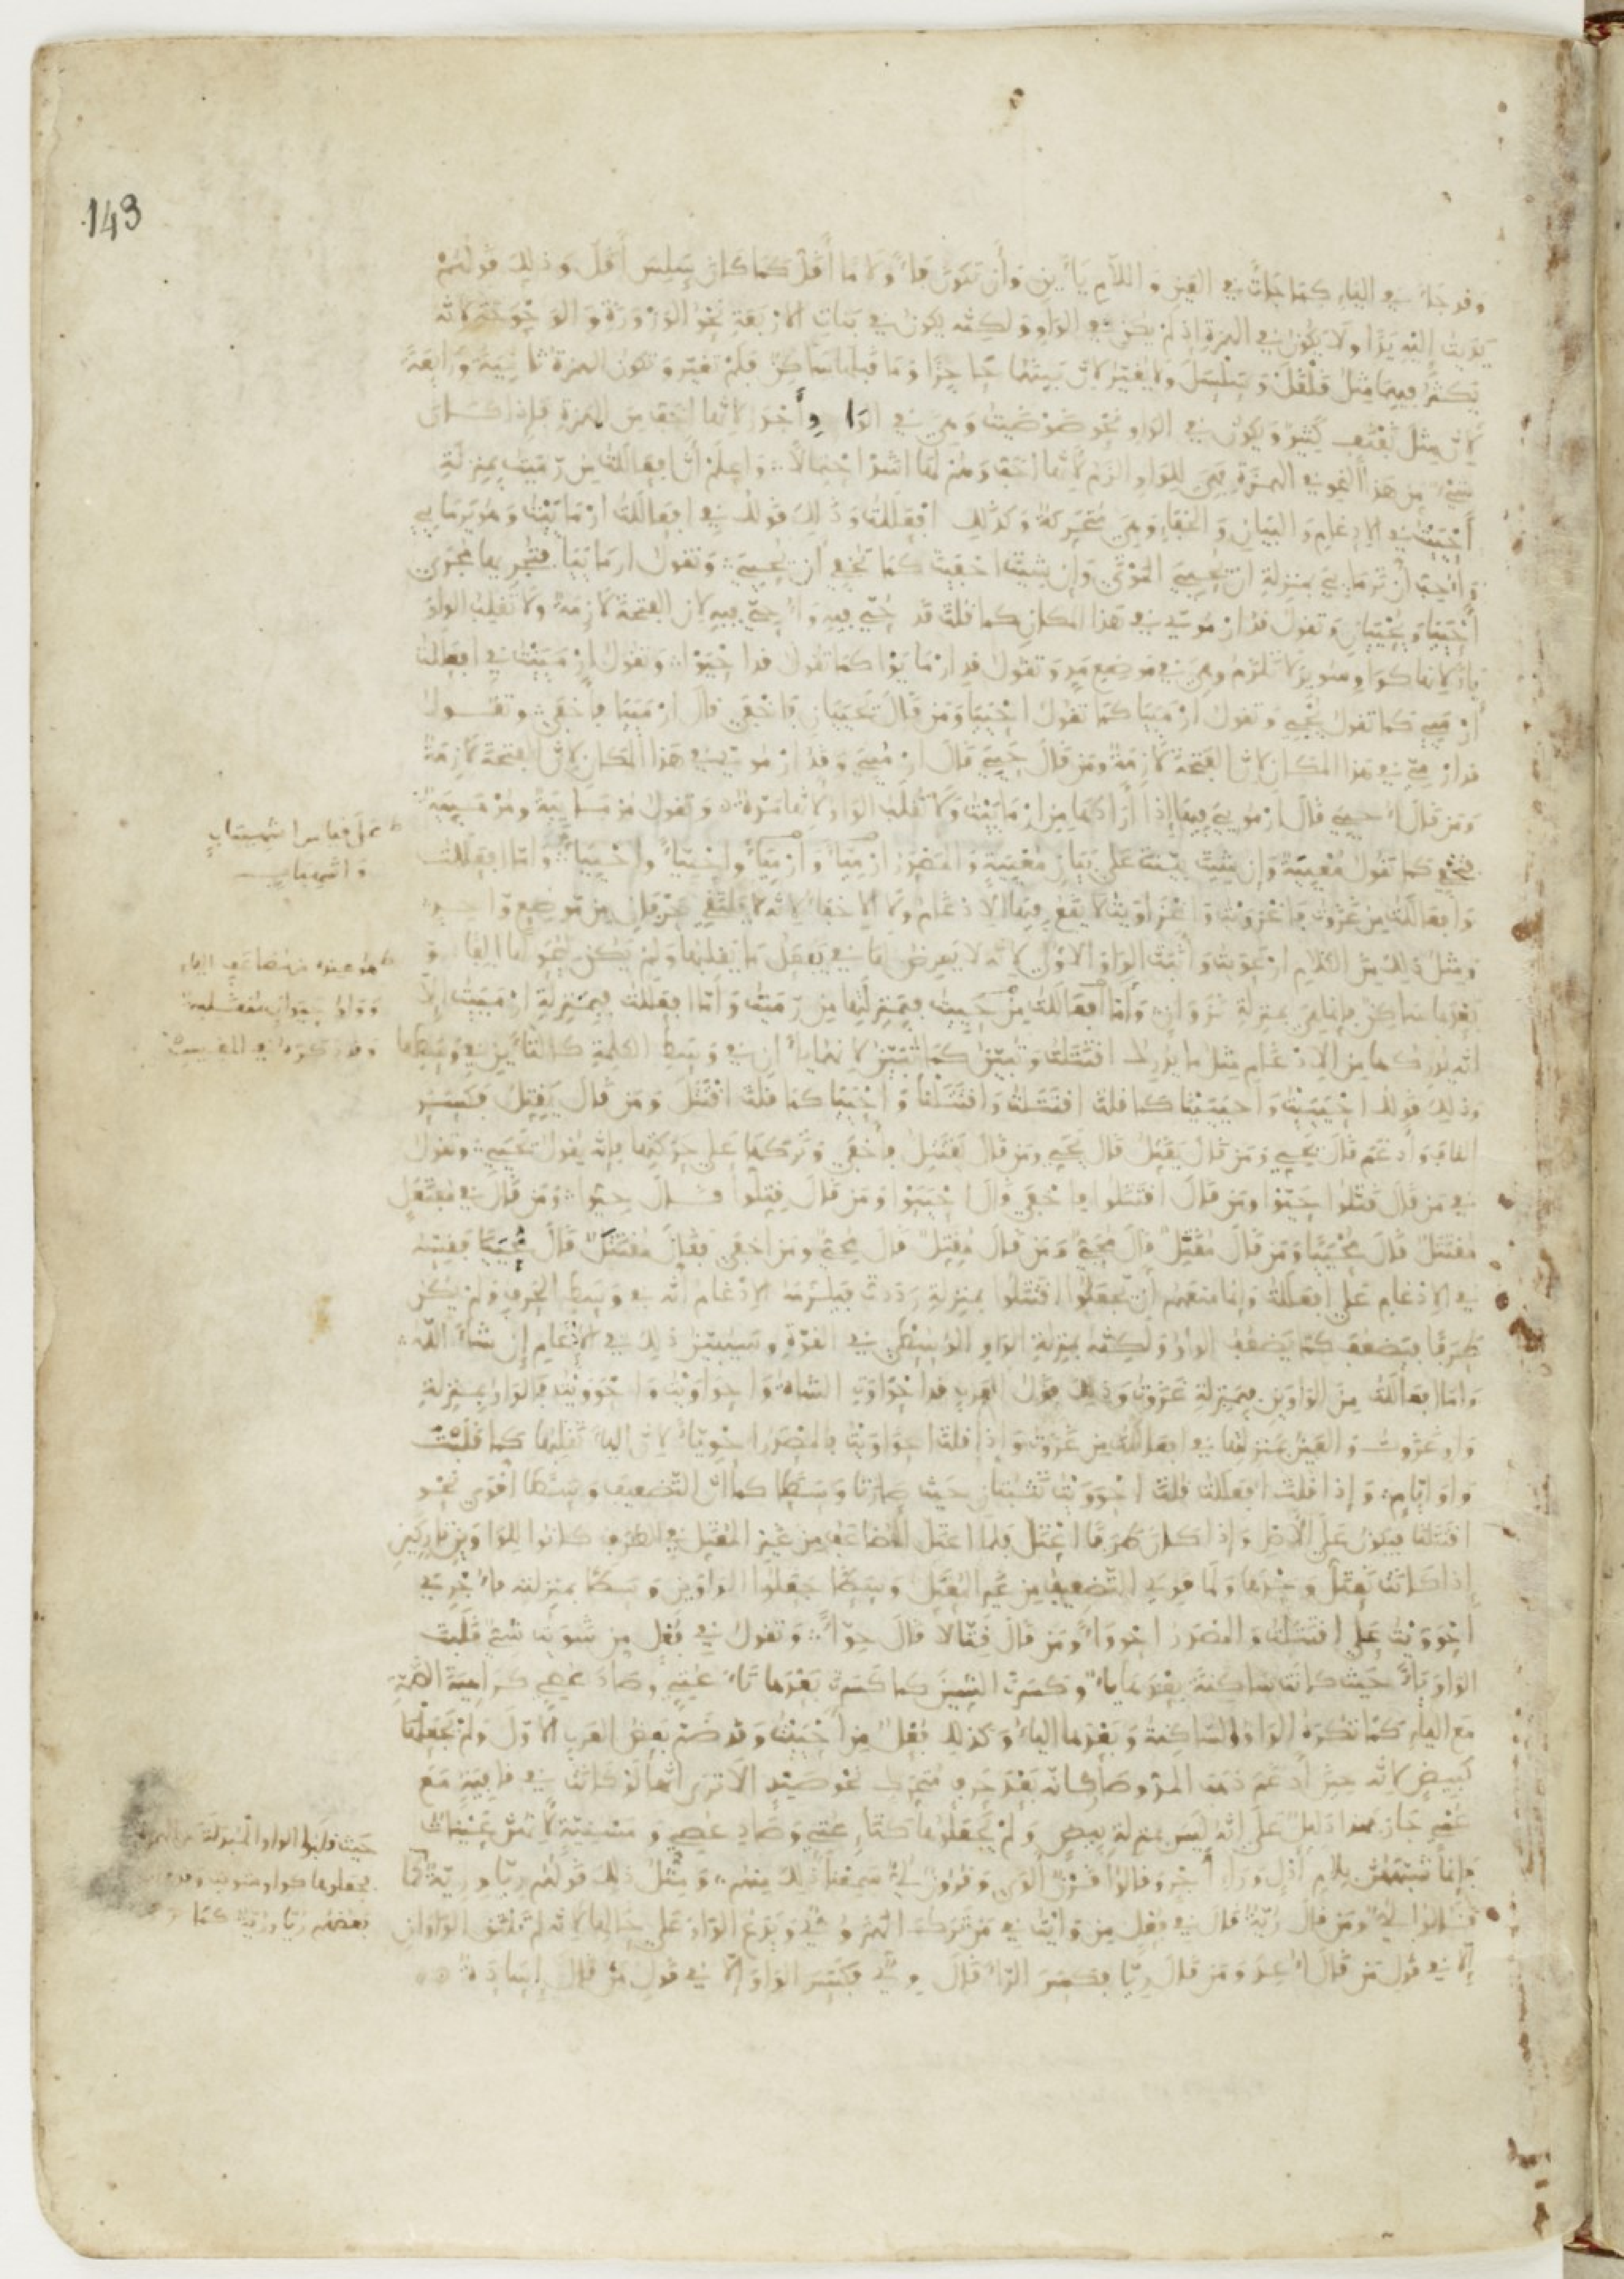 143
وقد جاء في الياء كما جاءت في العين واللام ياءين وأن تكون فاء ولاما أقل كما كان سلس أقل وذلك قولهم
يديت إليه يدا ولا يكون في الهمزة إذ لم يكن في الواو ولكنه يكون في بنات الأربعة نحو الوزوزة والوحوحة لأنه
يكثر فيها مثل قلقل وسلسل ولم تغير لأن بينهما حاجزا وما قبلها ساكن فلم تغير وتكون الهمزة ثانية ورابعة
لأن مثل نفنف كثير ويكون في الواو نحو ضوضيت وهي في الواو أجدر لأنها أخف من الهمزة فإذا كان
شيء من هذا النحو في الهمزة فهي للواو ألزم لأنها أخف وهم لها أشد احتمالا واعلم أن افعاللت من رميت بمنزلة
أحييت في الإدغام والبيان والخفاء وهي متحركة وكذلك افعللت وذلك قولك في افعاللت ارماييت وهو يرمايي
وأحب أن ترمايي بمنزلة أن يحيي الموتى وإن شئت أخفيت كما تخفي أن يحيي وتقول ارماييا فتجريها مجرى
أحييا ويحييان وتقول قد ارموي في هذا المكان كما قلت قد حي فيه وأحي فيه لأن الفتحة لازمة ولا تقلب الواو
ياء لأنها كواو سوير لا تلزم وهي في موضع مد وتقول قد ارمايوا كما تقول قد احيوا وتقول ارمييت في افعللت
يرميي كما تقول يحيي وتقول ارمييا كما تقول احييا ومن قال يحييان فأخفى قال ارمييا فأخفى وتقول
قد ارمي في هذا المكان لأن الفتحة لازمة ومن قال حيي قال ارميي وقد ارموي في هذا المكان لأن الفتحة لازمة
ومن قال أحيي قال ارمويي فيها إذا أرادها من ارماييت ولا تقلب الواو لأنها مدة وتقول مرماية ومرمية
فتخفي كما تقول معيية وإن شئت بينت على بيان معيية والمصدر ارمياء وارمياء واحياء واحيياء وأما افعللت
وافعاللت من غزوت فاغزويت واغزاويت لا يقع فيها الإدغام ولا الإخفاء لأنه لا يلتقي حرفان من موضع واحد
ومثل ذلك من الكلام ارعويت وأثبت الواو الأولى لأنه لا يعرض لها في يفعل ما يقلبها ولم يكن
بعدها ساكن فإنما هي بمنزلة نزوان وأما افعاللت من حييت فبمنزلتها من رميت وأما افعللت فبمنزلة ارمييت إلا
أنه يدركها من الإدغام مثل ما يدرك اقتتلت وتبين كما تبين لأنهما ياءان في وسط الكلمة كالتاءين في وسطها
وذلك قولك احيييت واحييينا كما قلت اقتتلت واقتتلنا واحييا كما قلت اقتتل ومن قال يقتل فكسر
القاف وأدغم قال يحيي ومن قال يقتل قال يحيي ومن قال يقتتل فأخفى وتركها على حركتها فإنه يقول يحييي وتقول
في من قال قتلوا حيوا ومن قال اقتتلوا فأخفى قال احييوا ومن قال قتلوا قال حيوا ومن قال في مفتعل
مقتتل قال محييا ومن قال مقتل قال محي ومن قال مقتل قال محي ومن أخفى فقال مقتتل قال محييا فقسه
في الإدغام على افتعلت وإنما منعهم أن يجعلوا اقتتلوا بمنزلة رددت فيلزمه الإدغام أنه في وسط الحرف ولم يكن
طرفا فيضعف كما تضعف الواو ولكنه بمنزلة الواو الوسطى في القوة وسنبين ذلك في الإدغام إن شاء الله
وأما افعاللت من الواوين فبمنزلة غزوت وذلك قول العرب قد احواوت الشاة واحواويت واحوويت فالواو بمنزلة
واو غزوت والعين بمنزلتها في افعاللت من غزوت وإذا قلت احواويت فالمصدر احوياء لأن الياء تقلبها كما قلبت
واو أيام وإذا قلت افعللت قلت احوويت تثبتان حيث صارتا وسطا كما أن التضعيف وسطا أقوى نحو
اقتتلنا فيكون على الأصل وإذا كان طرفا اعتل فلما اعتل المضاعف من غير المعتل في الطرف كانوا للواوين تاركين
إذا كانت تعتل وحدها ولما قوي التضعيف من غير المعتل وسطا جعلوا الواوين وسطا بمنزلته فأجري
احوويت على اقتتلت والمصدر احوواء ومن قال قتالا قال حواء وتقول في فعل من شويت شي قلبت
الواو ياء حيث كانت ساكنة بعدها ياء وكسرت الشين كما كسرت تاء عتي وصاد عصي كراهية الضمة
مع الياء كما تكره الواو الساكنة وبعدها الياء وكذلك فعل من أحييت وقد ضم بعض العرب الأول ولم يجعلها
كبيض لأنه حين أدغم ذهب المد وصار كأنه بعد حرف متحرك نحو صيد ألا ترى أنها لو كانت في قافية مع
عمي جاز هذا دليل على أنه ليس بمنزلة بيض ولم يجعلوها كتاء عتي وصاد عصي
فإنما شبهت بلام أدل وراء أجر وقالوا قرن ألوى وقرون لي سمعنا ذلك منهم ومثل ذلك قولهم ريا ورية
قالوا لي ومن قال رية قال في فعل من وأيت في من ترك الهمز وي ويدع الواو على حالها لأنه لم تلتق الواوان
إلا في قول من قال أعد ومن قال ريا فكسر الراء قال وي فكسر الواو إلا في قول من قال إسادة
واشهباب
حيث قلبوا الواو المبدلة من الهمزة
فجعلوها كواو شويت وقد
بعضهم ريا ورية كما